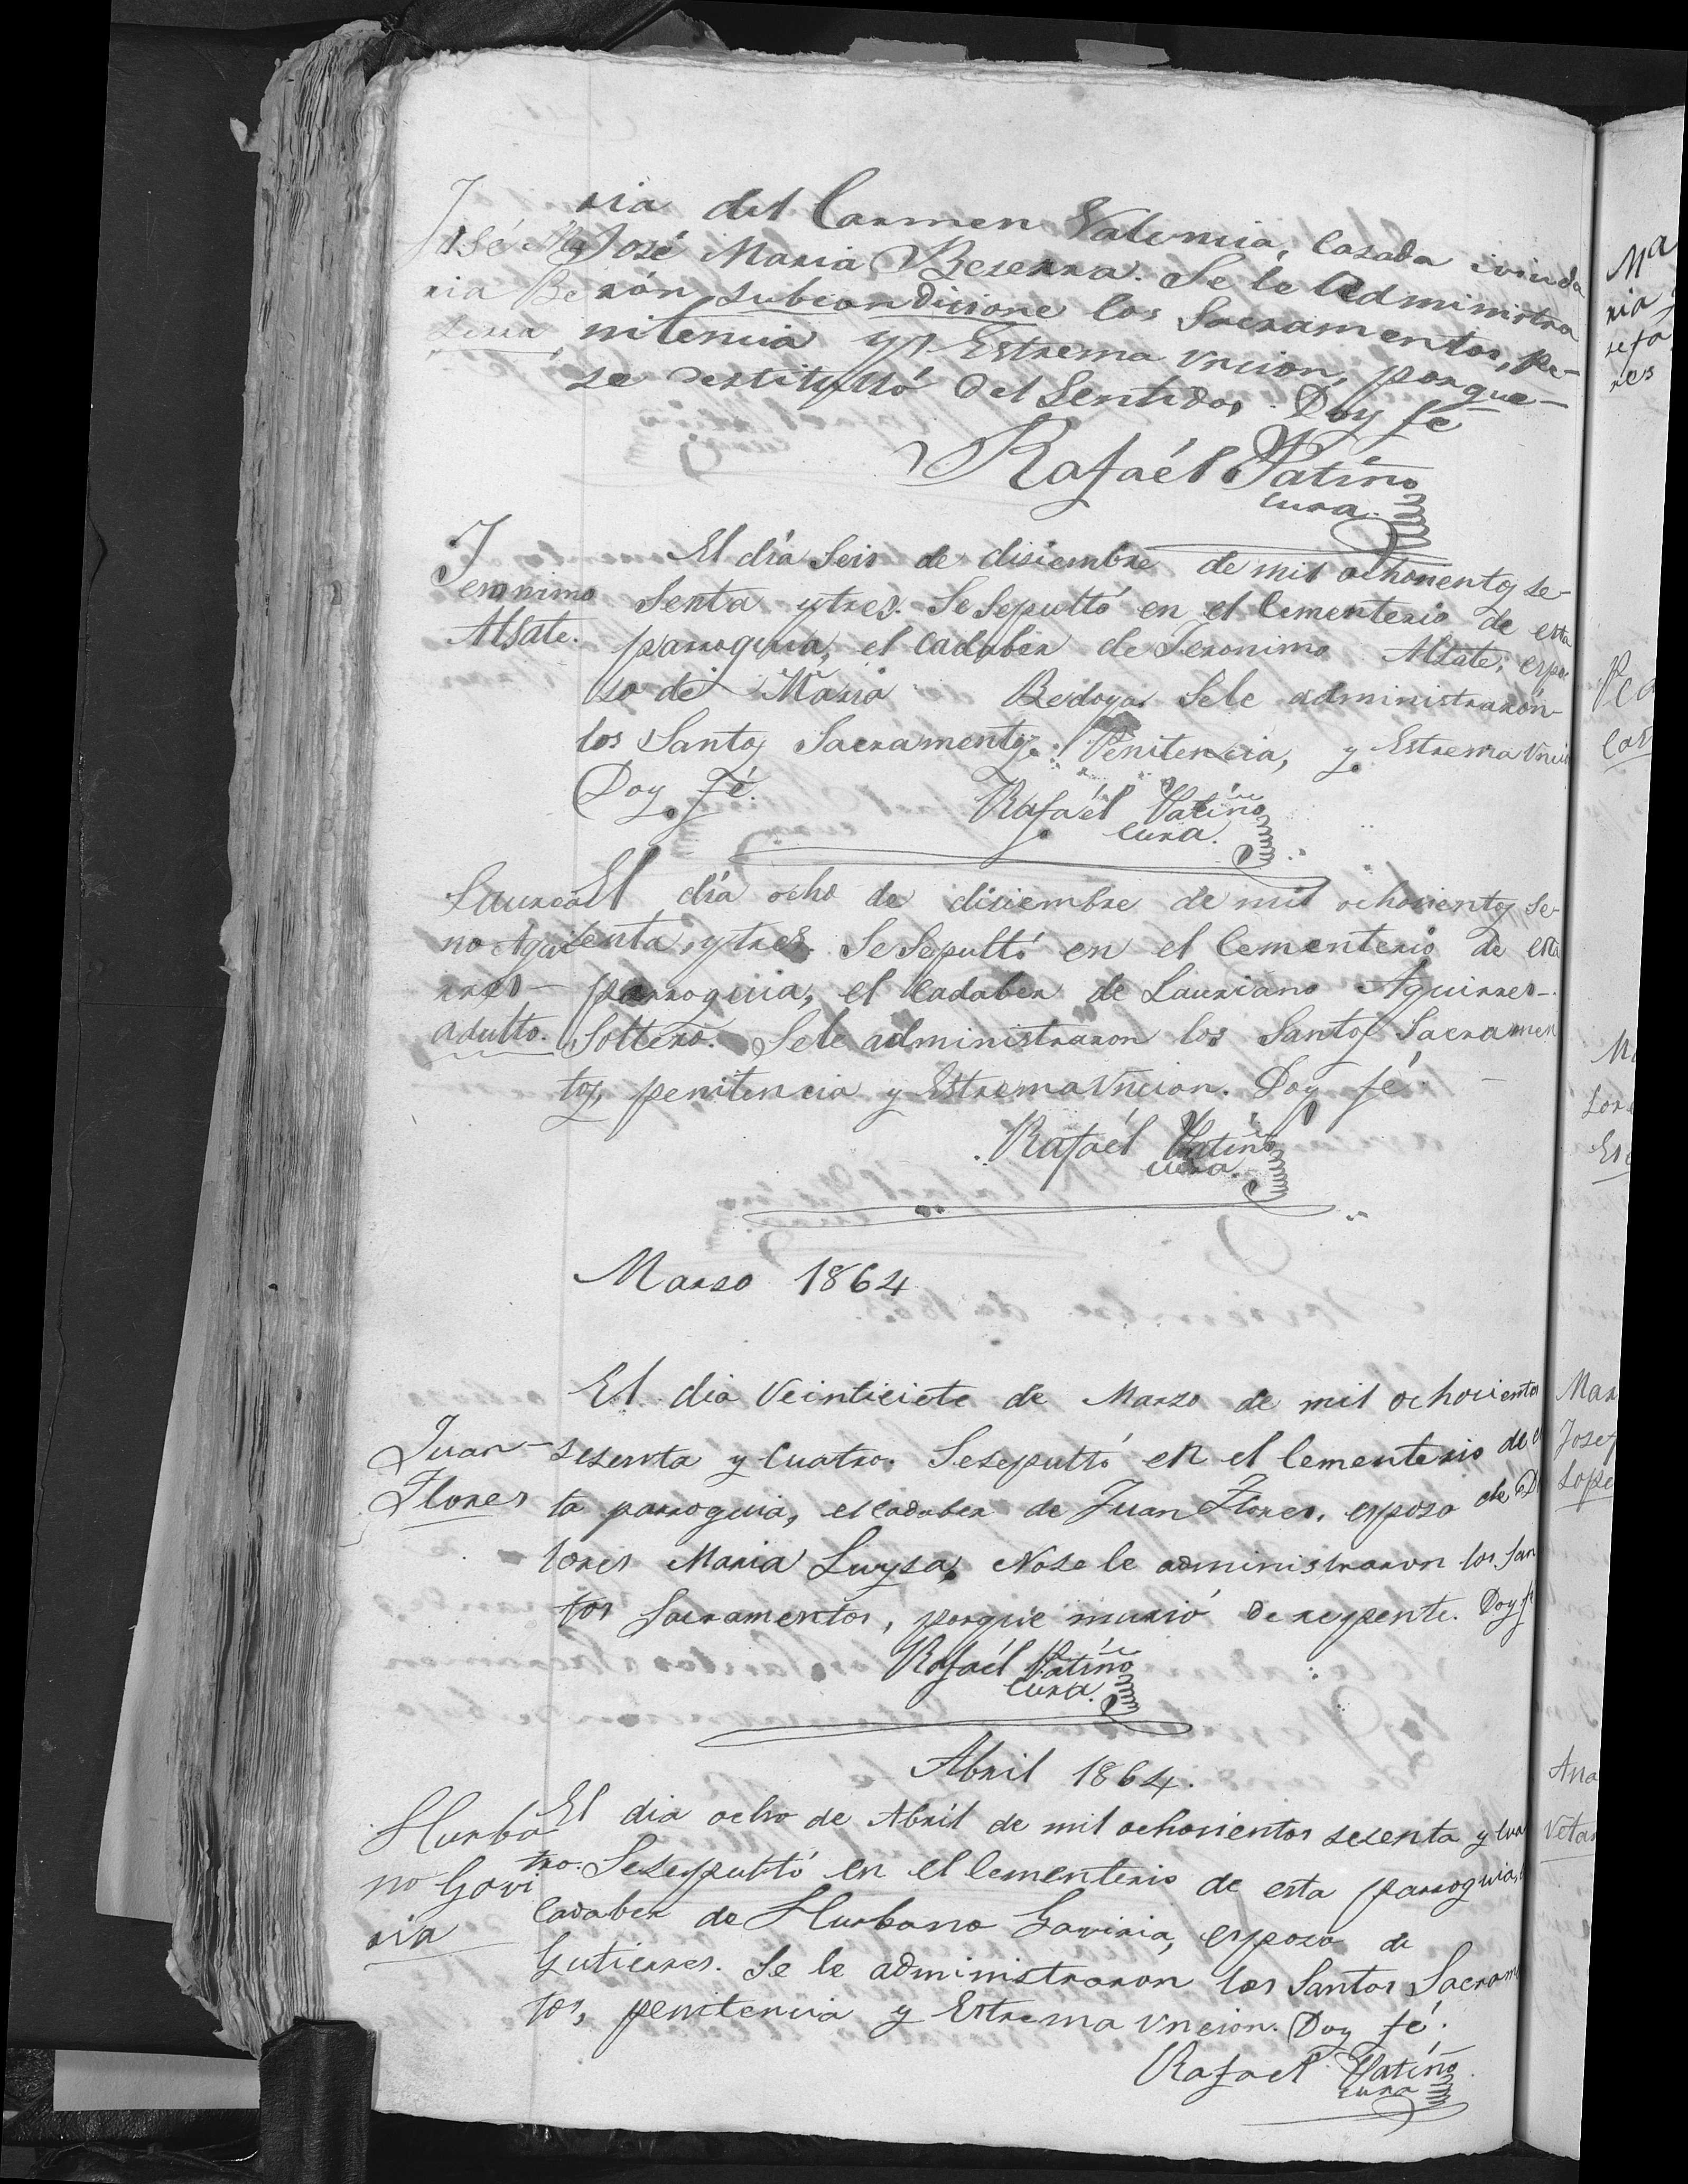 ria del Carmen Valencia, Casada i viuda
José Ma José Maria Beserra. Se le Administra
ria Be rón subcondicione los Sacramentos, pe-
serra nitencia y Estrema Vncion, porque-
se destitulló del Sentidos. Doy fe
Rafaél Patiño
cura.
El día Seis de disiembre de mil ochocientos se-
Jeronimo Senta y tres. Se Sepultó en el Cementerio de esta
Alsate. parroquia, el Cadaber de Jeronimo Alsate, espo
so de Maria Bedoya. Sele administrarón
los Santos Sacramentos: Penitencia, y Estrema Vncion
Doy fé.
Rafaél Patiño
cura.
Laurea El día ocho de diciembre de mil ochocientos se-
no Agui senta, y tres. Se Sepultó en el Cementerio de esta
rres- parroquia, el Cadaber de Lauriano Aguirres-
adulto. Soltero. Sele administraron los Santos Sacramen
tos, penitencia y Estrema Vncion. Doy fé
Rafaél Patiño
cura.
Marso 1864
El dia Veinticiete de Marzo de mil ochocientos
Juan- sesenta y Cuatro. Sesepultó en el Cementerio de es
Flores ta parroquia, el cadaber de Juan Flores, esposo de D
lores Maria Luysa, Nose le administraron los San
tos Sacramentos, porque murió de reypente. Doy fe
Rafaél Patiño
cura.
Abril 1864.
Hurba El dia ocho de Abril de mil ochocientos sesenta y Cua
no Gavi tro. Sesepultó en el Cementerio de esta parroquia,
ria Cadaber de Hurbano Gaviria, esposo de
Gutierres. Se le administraron los Santos Sacram
tos, penitencia y Estrema Vncion. Doy fé.
Rafael Patiño
cura